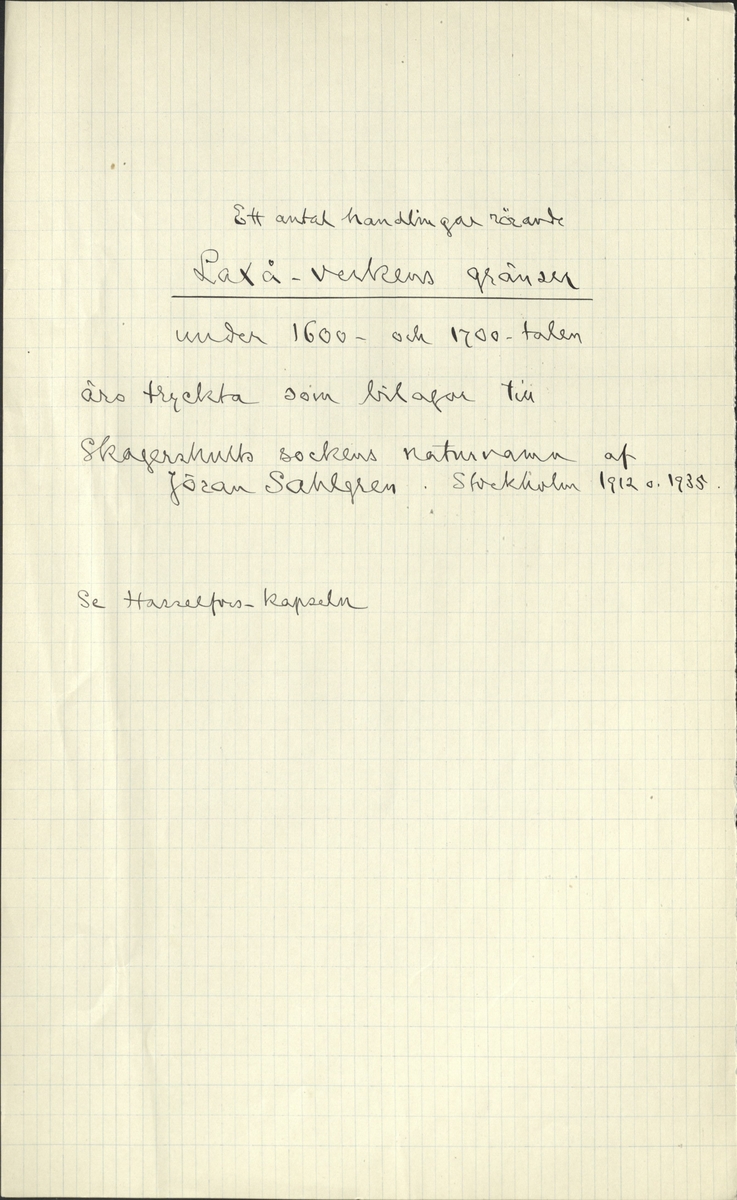 Ett antal handlingar rörande
Laxå-verkens gränser
under 1600- och 1700-talen
äro tryckta som bilagor till
Skagershults sockens naturnamn af
Jöran Sahlgren. Stockholm 1912 o. 1935.
Se Hasselfors-kapseln